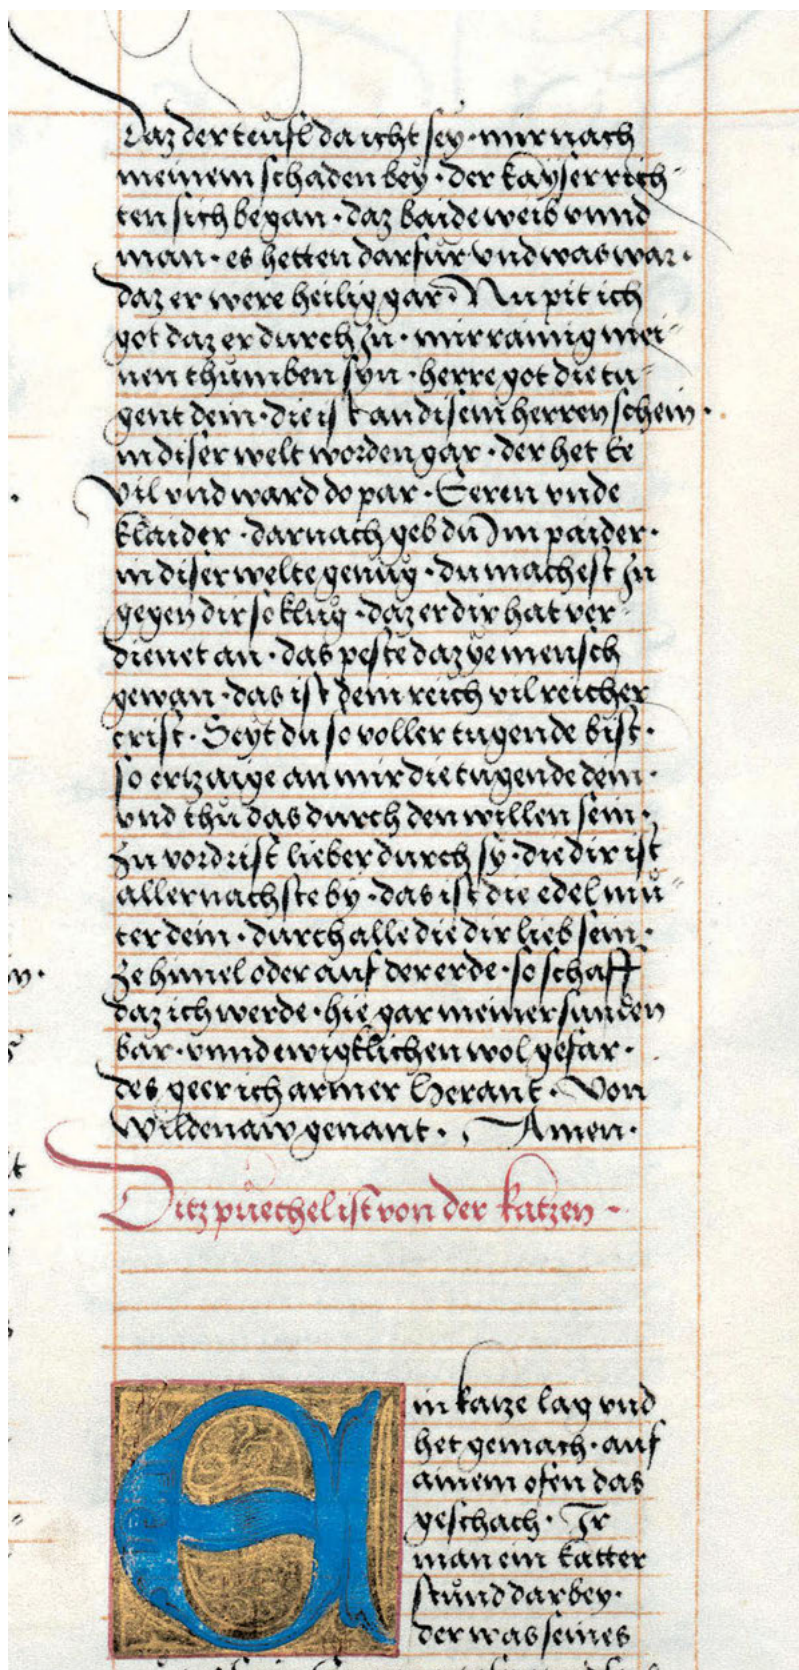 Daz der teufl da icht sey · mir nach
meinem schaden bey · der kayser rich-
ten sich began · daz baide weib vnnd
man · es hetten darfür vnd was war ·
daz er were heilig gar · Nu pit ich
got daz er durch In · mir rainig mei-
nen thumben syn · herre got die tu-
gent dein · die ist an disem herren schein ·
in diser welt worden gar · der het Ee
vil vnd ward do par · Eeren vnde
klaider · darnach geb du Im paider ·
in diser welte genůg · du machest In
gegen dir so klůg · daz er dir hat ver-
dienet an · das peste daz ye mensch
gewan · das ist dein reich vil reicher
crist · Seyt du so voller tugende bist ·
so ertzaige an mir die tugende dein ·
vnd thů das durch den willen sein ·
Zu vordrist lieber durch sy · die dir ist
aller nachste by · das ist die edel mů-
ter dein · durch alle die dir lieb sein ·
Ze himel oder auf der erde · so schaff
daz ich werde · hie gar meiner sunden
bar · vnnd ewigklichen wol gefar ·
des geer ich armer Herant · Von
Wildenaw genant · Amen ·
Ditz půechel ist von der katzen ·
Ein katze lag vnd
het gemach · auf
ainem ofen das
geschach · Ir
man ein katter
stůnd darbey ·
der was seines